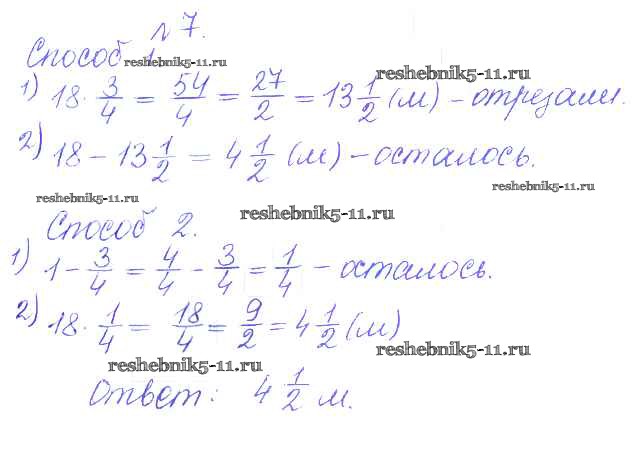 № 7.
Способ 1. reshebnik5-11.ru
1) 18 · 3/4 = 54/4 = 27/2 = 13 1/2 (м) – отрезали.
reshebnik5-11.ru
2) 18 – 13 1/2 = 4 1/2 (м) – осталось.
reshebnik5-11.ru
reshebnik5-11.ru
Способ 2. reshebnik5-11.ru
1) 1 – 3/4 = 4/4 – 3/4 = 1/4 – осталось.
2) 18 · 1/4 = 18/4 = 9/2 = 4 1/2 (м)
reshebnik5-11.ru
reshebnik5-11.ru
Ответ: 4 1/2 м.